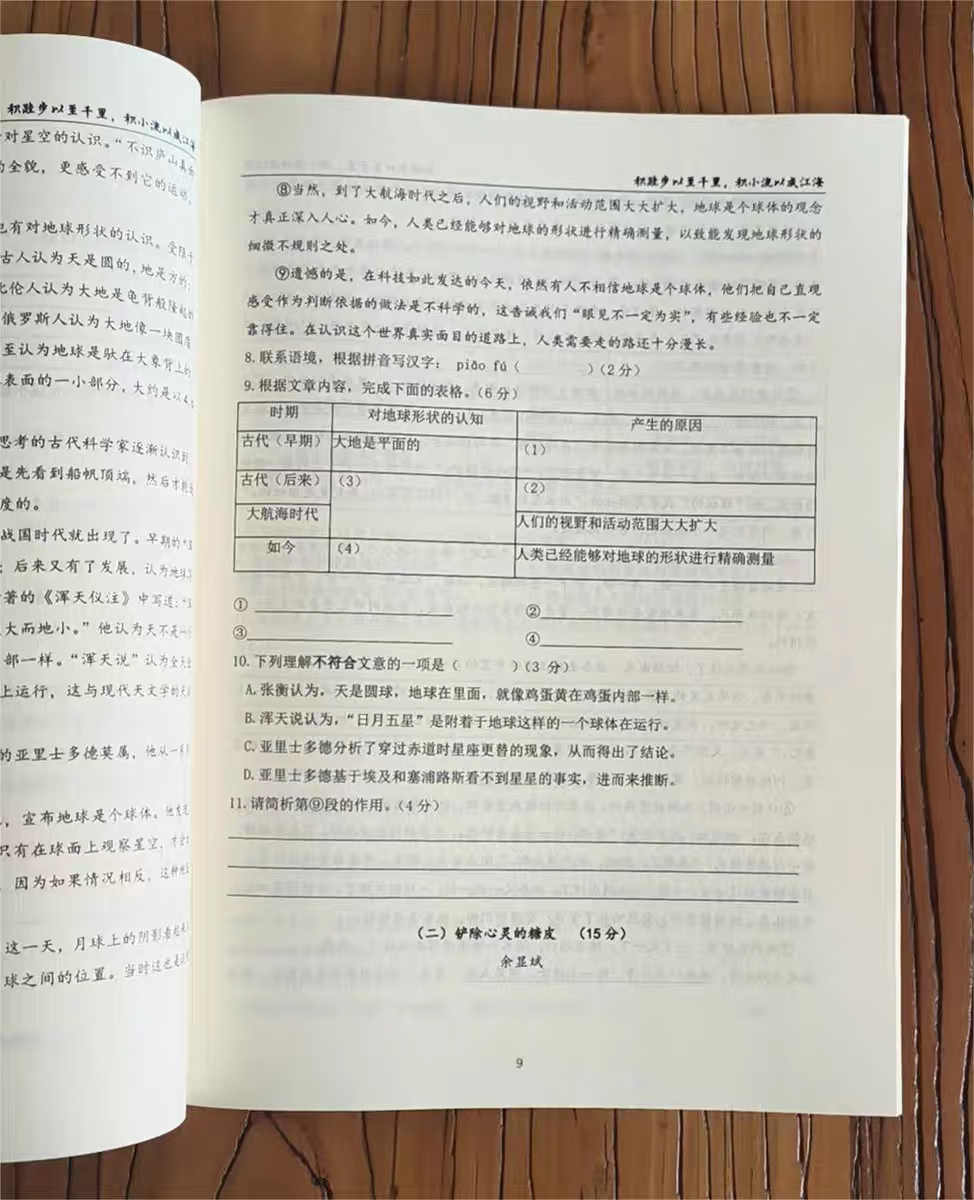 积跬步以至千里，积小流以成江海
对星空的认识。“不识庐山真
的全貌，更感受不到它的运动，
也有对地球形状的认识。受限于
古人认为天是圆的，地是方的；
比伦人认为大地是龟背般隆起的
俄罗斯人认为大地像一块圆盾
至认为地球是驮在大象背上的
表面的一小部分，大约是以
思考的古代科学家逐渐认识到
是先看到船帆顶端，然后才能
度的。
战国时代就出现了。早期的
；后来又有了发展，认为地球
著的《浑天仪注》中写道：
大而地小。”他认为天不是一
部一样。“浑天说”认为全天
上运行，这与现代天文学的天
的亚里士多德莫属，他从一
，宣布地球是个球体。他发现
只有在球面上观察星空，才
因为如果情况相反，这种
这一天，月球上的阴影看起来
球之间的位置。当时这也是
积跬步以至千里，积小流以成江海
⑧当然，到了大航海时代之后，人们的视野和活动范围大大扩大，地球是个球体的观念
才真正深入人心。如今，人类已经能够对地球的形状进行精确测量，以致能发现地球形状的
细微不规则之处。
⑨遗憾的是，在科技如此发达的今天，依然有人不相信地球是个球体，他们把自己直观
感受作为判断依据的做法是不科学的，这告诫我们“眼见不一定为实”，有些经验也不一定
靠得住。在认识这个世界真实面目的道路上，人类需要走的路还十分漫长。
8.联系语境，根据拼音写汉字： piāo fú（ ）（2分）
9.根据文章内容，完成下面的表格。（6分）
时期 对地球形状的认知 产生的原因
古代（早期） 大地是平面的 （1）
古代（后来） （3） （2）
大航海时代 人们的视野和活动范围大大扩大
如今 （4） 人类已经能够对地球的形状进行精确测量
① ②
③ ④
10.下列理解不符合文意的一项是（ ）（3 分）
A.张衡认为，天是圆球，地球在里面，就像鸡蛋黄在鸡蛋内部一样。
B.浑天说认为，“日月五星”是附着于地球这样的一个球体在运行。
C.亚里士多德分析了穿过赤道时星座更替的现象，从而得出了结论。
D.亚里士多德基于埃及和塞浦路斯看不到星星的事实，进而来推断。
11.请简析第⑨段的作用。（4分）
（二）铲除心灵的糖皮 （15分）
余显斌
9